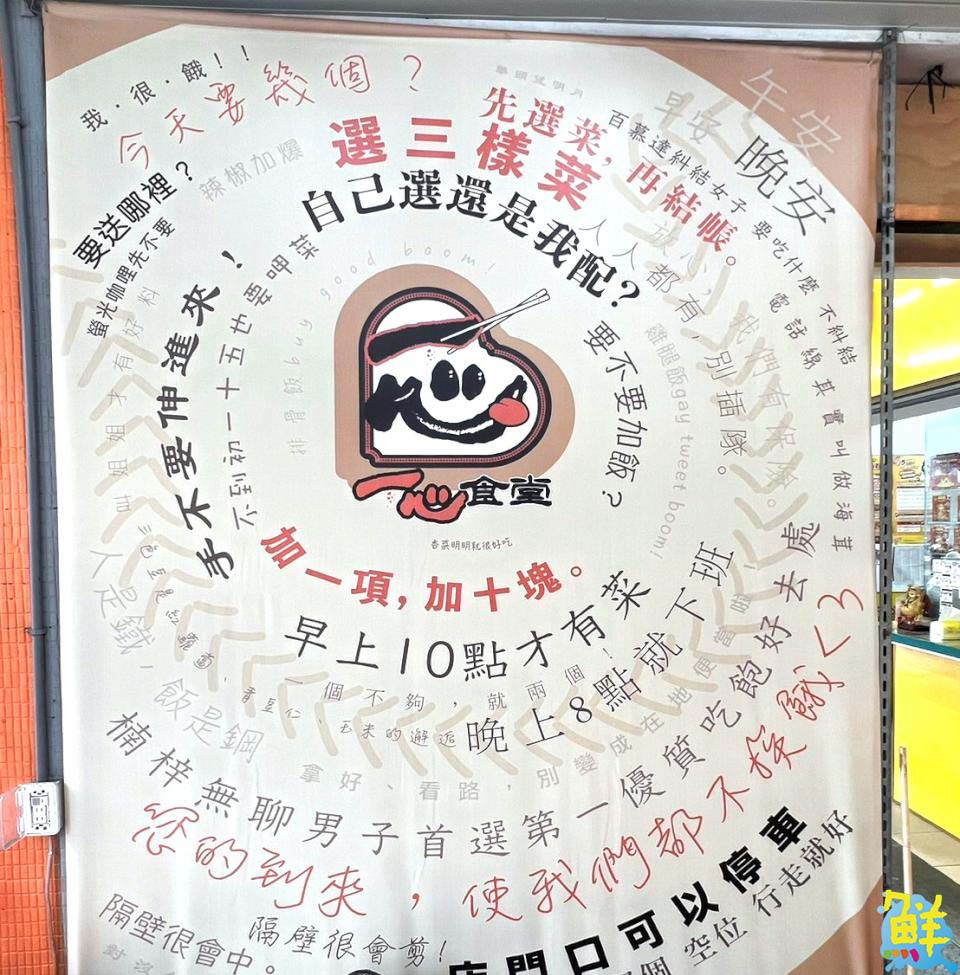 我·很·餓!!
今天要幾個?
舉頭望明月
早安
午安
晚安
先選菜,再結帳。
選三樣菜
百慕達糾結女子 要吃什麼 不糾結
辣椒加爆
要送哪裡?
螢光咖哩先不要
自己選還是我配?
人人都有,別插隊。
放心,我們有
電話線其實叫做海茸
手不要伸進來!
不到初一十五也要呷菜
good boom!
排骨飯 buy
雞腿飯gay tweet boom!
要不要加飯?
叫姐姐才有好料
一心食堂
杏菜明明就很好吃
加一項,加十塊。
早上10點才有菜
晚上8點就下班
一個不夠,就兩個!
青豆仁、玉米的邂逅
人是鐵,
飯是鋼
拿好、看路,別變成在地
楠梓無聊男子首選第一優質吃飽好去處
您的到來,使我們都不挨餓<3
隔壁很會中。
隔壁很會剪!
店門口可以停車
空位 行走就好
鮮